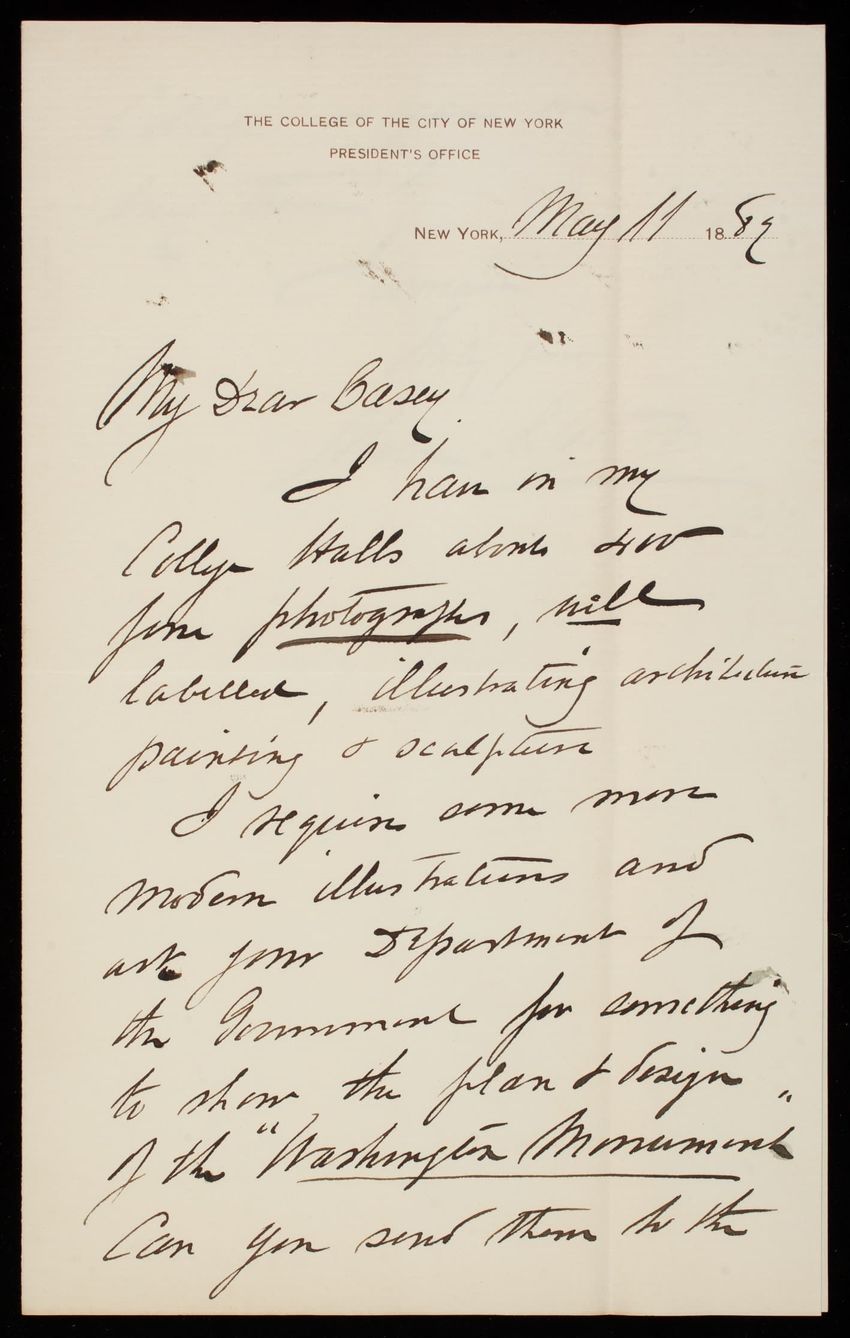 THE COLLEGE OF THE CITY OF NEW YORK
PRESIDENT'S OFFICE
NEW YORK, May 11 1889
My Dear Casey.
I have in my
College Halls about 400
fine photographs, well
labelled, illustrating architecture
painting & sculpture
I require some more
modern illustrations and
ask your Department of
the Government for something
to show the plan & design
of the "Washington Monument"
Can you send them to the